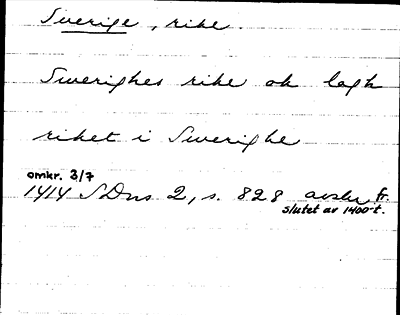 Sverige, rike.
Swerighes rike ok logh
riket i Swerighe
omkr. 3/7
1414 SDns 2, s. 828 avskr. fr.
slutet av 1400-t.